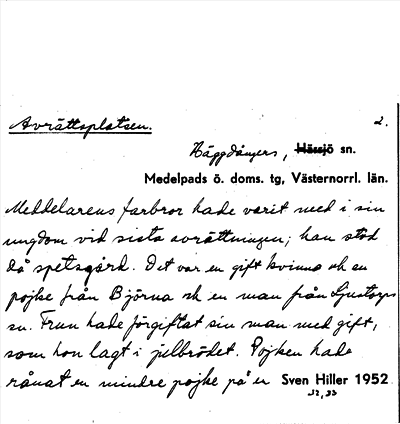 Avrättsplatsen. 2.
Häggdångers, Hässjö sn.
Medelpads ö. doms. tg, Västernorrl. län.
Meddelarens farbror hade varit med i sin
ungdom vid sista avrättningen; han stod
då spetsgård. Det var en gift kvinna och en
pojke från Björna och en man från Ljustorps
sn. Frun hade förgiftat sin man med gift,
som hon lagt i julbrödet. Pojken hade
rånat en mindre pojke på en Sven Hiller 1952
32,33